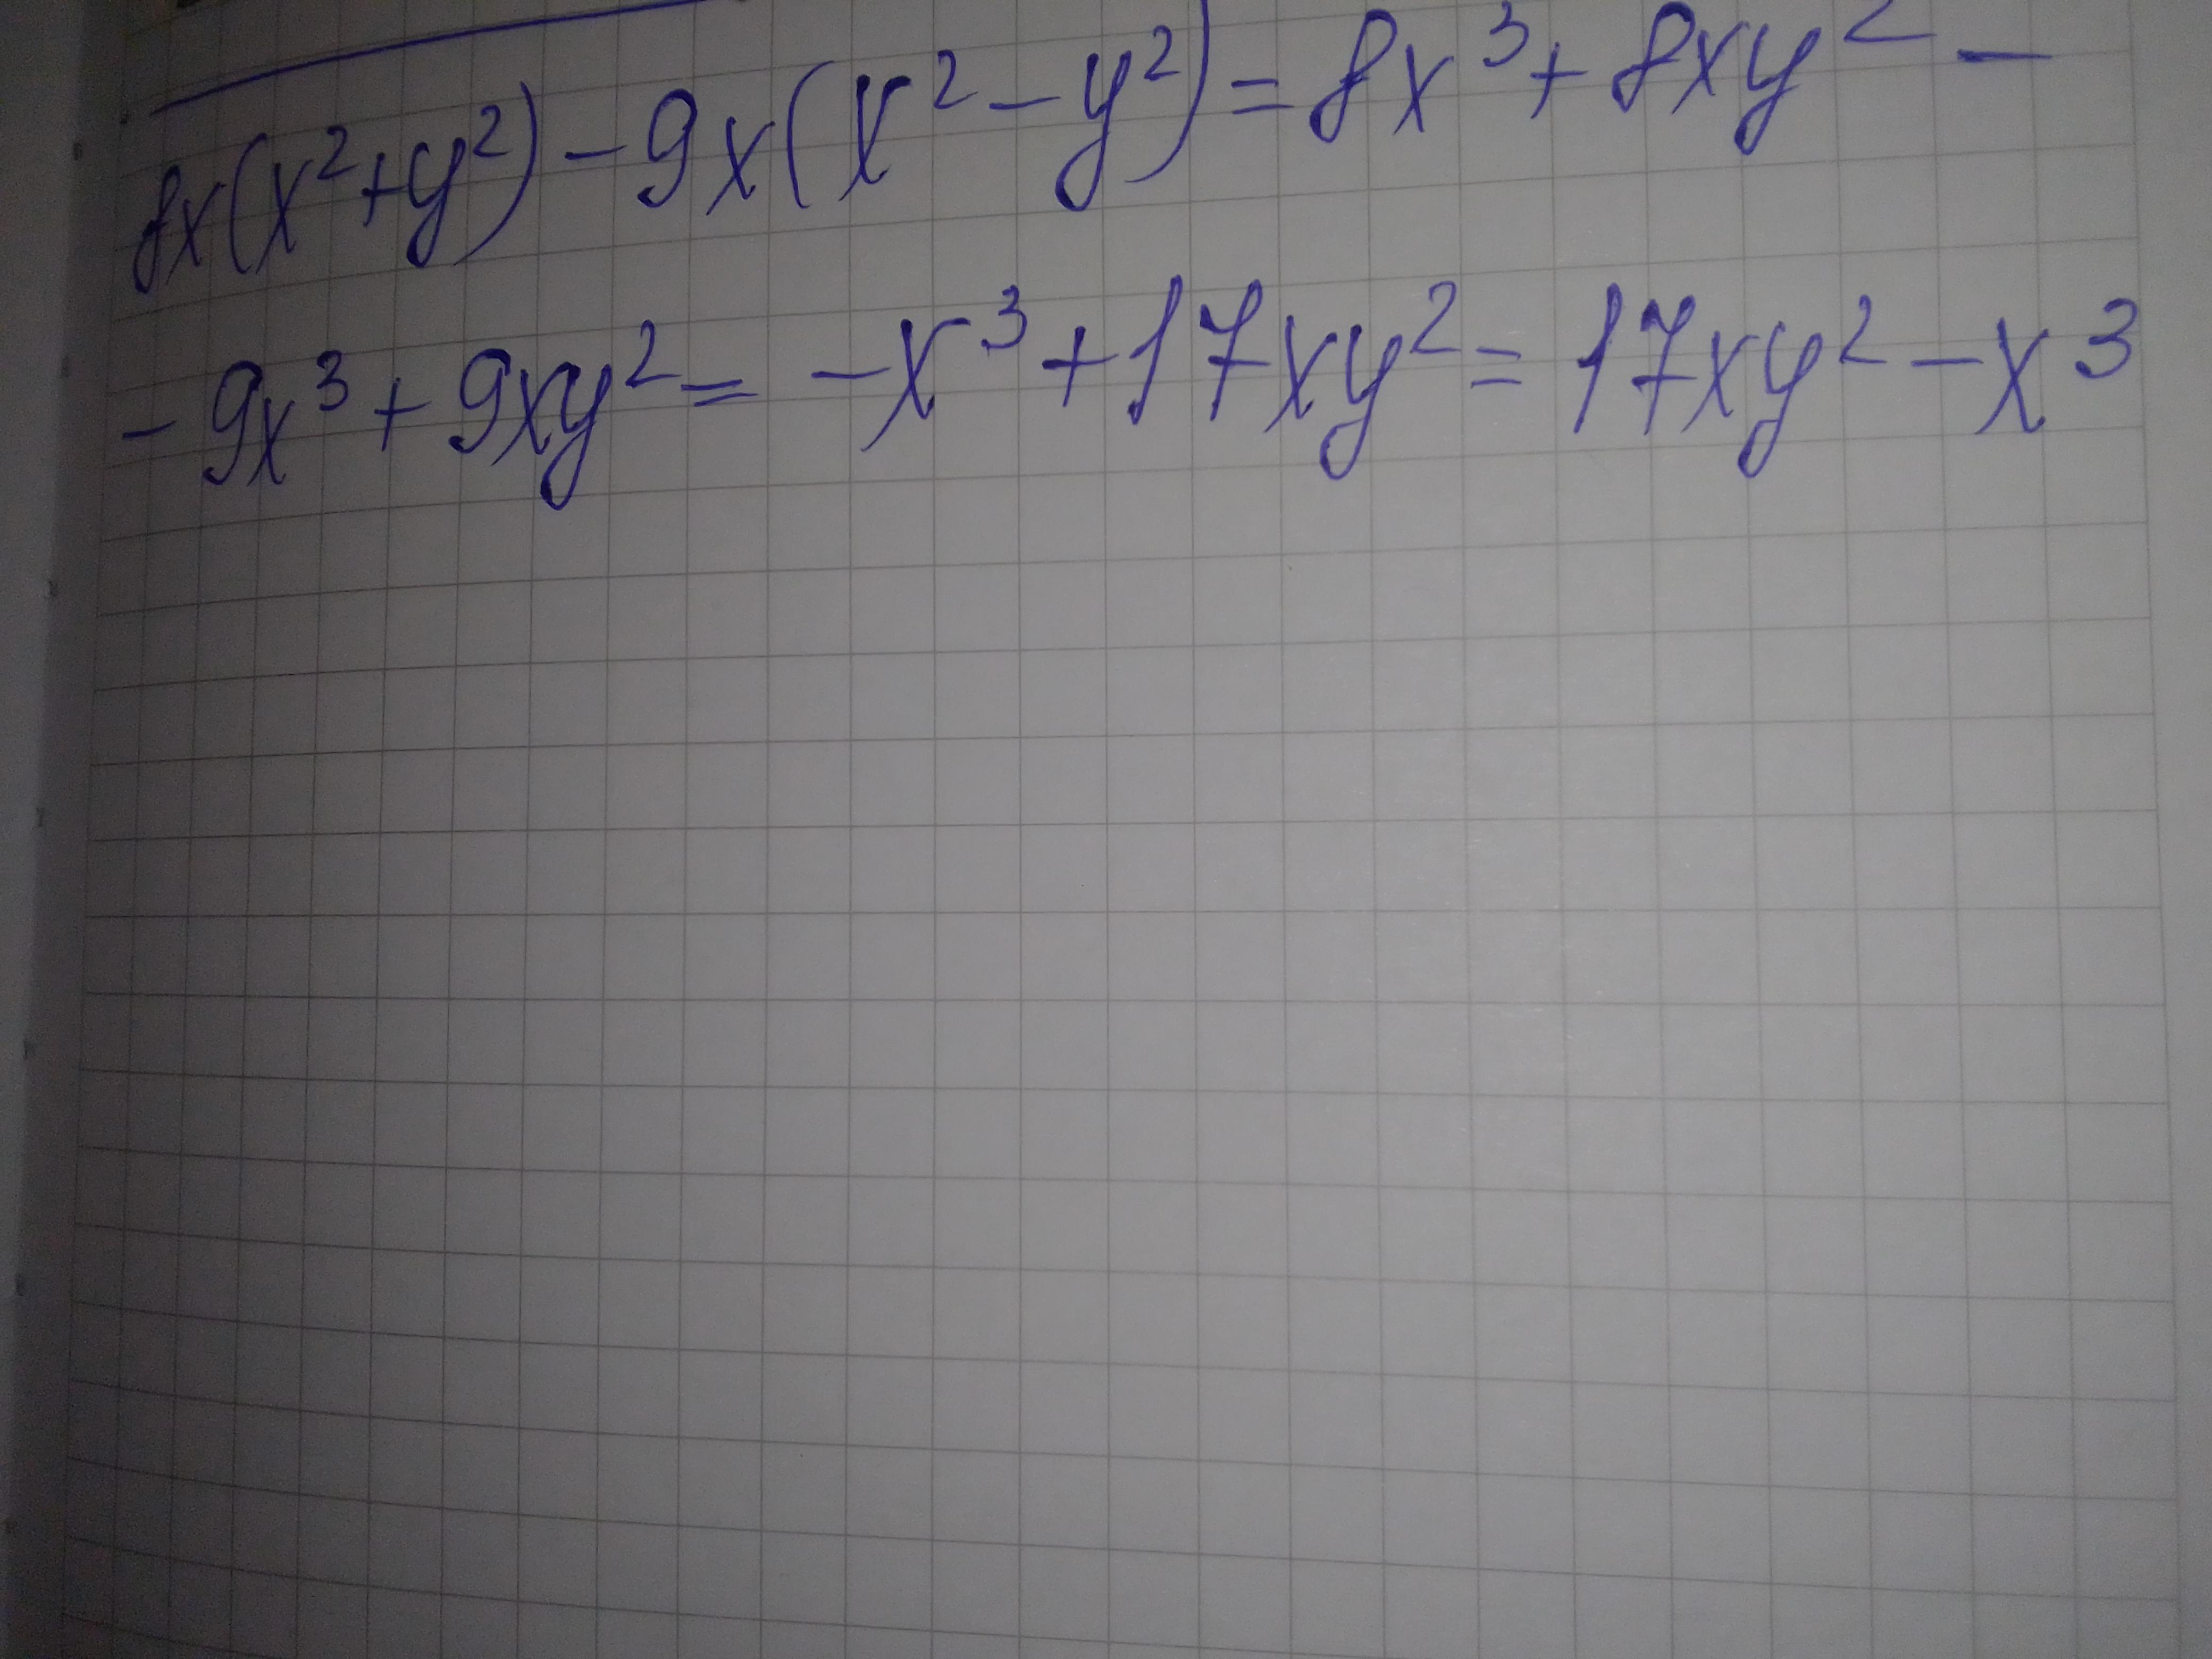 8x(x²+y²)-9x(x²-y²)=8x³+8xy²-
-9x³+9xy²=-x³+17xy²=17xy²-x³